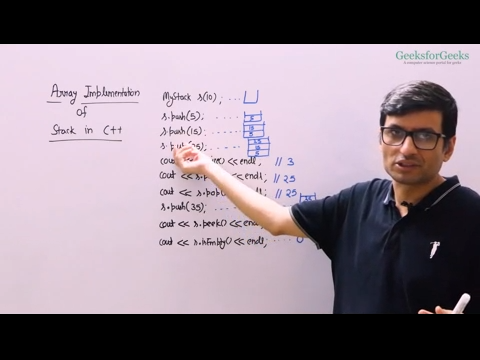 GeeksforGeeks
A computer science portal for geeks
Array Implementation
of
Stack in C++
MyStack s(10);
s.push(5);
5
s.push(15);
15
5
s.
25);
25
15
5
cout
<< endl; // 3
cout << s.p
<< endl; // 25
cout << s.pop
<< endl; // 25
s.push(35);
cout << s.peek() << endl;
cout << s.isEmpty() << endl; 0